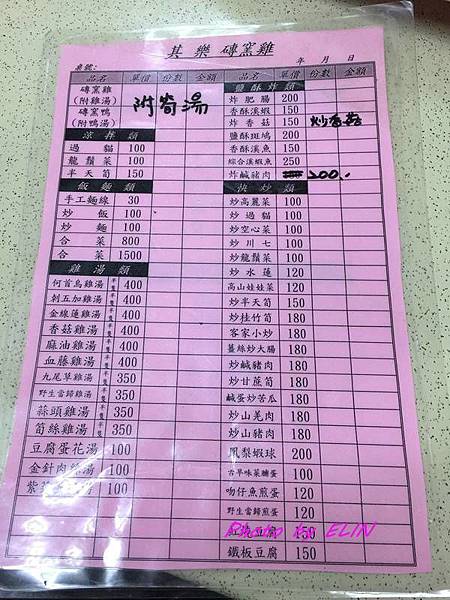 其樂磚窯雞
桌號:
年 月 日
品名 單價 份數 金額
磚窯雞
(附雞湯)
磚窯鴨
(附鴨湯)
附筍湯
涼拌類
過貓 100
龍鬚菜 100
半天筍 150
飯麵類
手工麵線 30
炒飯 100
炒麵 100
合菜 800
合菜 1500
雞湯類
何首烏雞湯 半隻 400
刺五加雞湯 半隻 400
金線蓮雞湯 半隻 400
香菇雞湯 半隻 400
麻油雞湯 半隻 400
血藤雞湯 半隻 400
九尾草雞湯 半隻 350
野生當歸雞湯 半隻 350
蒜頭雞湯 半隻 350
筍絲雞湯 半隻 350
豆腐蛋花湯 100
金針肉絲湯 100
紫 湯 100
品名 單價 份數 金額
鹽酥炸類
炸肥腸 200
香酥溪蝦 150
炸香菇 150 炒香菇
鹽酥斑鳩 200
香酥溪魚 150
綜合溪蝦魚 250
炸鹹豬肉 200..
快炒類
炒高麗菜 100
炒過貓 100
炒空心菜 100
炒川七 100
炒龍鬚菜 100
炒水蓮 120
高山娃娃菜 120
炒半天筍 150
炒桂竹筍 180
客家小炒 180
薑絲炒大腸 180
炒鹹豬肉 180
炒甘蔗筍 180
鹹蛋炒苦瓜 180
炒山羌肉 180
炒山豬肉 180
鳳梨蝦球 200
古早味菜脯蛋 100
吻仔魚煎蛋 120
野生當歸煎蛋 120
紅燒豆腐 150
鐵板豆腐 150
Photo by ELIN